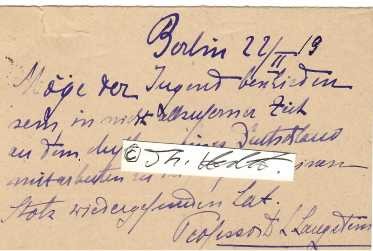 Berlin 22/II 19
Möge der Jugend beschieden
sein, in nicht allzuferner Zeit
an dem Deutschland
© Th. Veidt.
mitarbeiten
Stolz wiedergefunden hat.
Professor Dr L Langstein